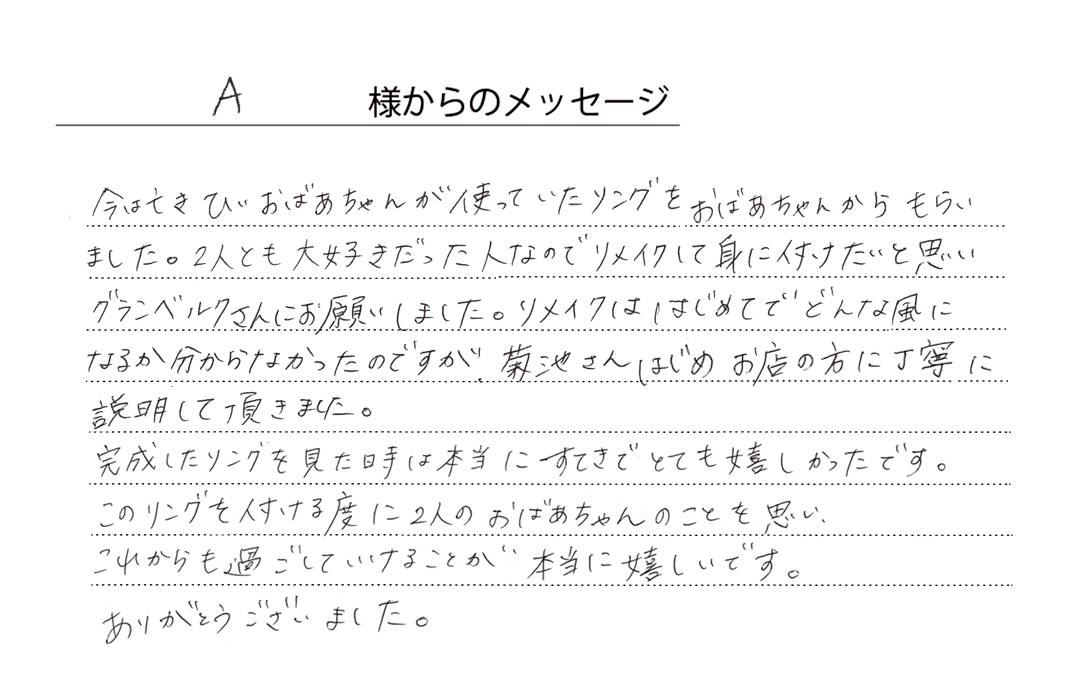 A 様からのメッセージ
今は亡きひいおばあちゃんが使っていたリングをおばあちゃんからもらい
ました。2人とも大好きだった人なのでリメイクして身に付けたいと思い
グランベルクさんにお願いしました。リメイクははじめてでどんな風に
なるか分からなかったのですが、菊池さんはじめお店の方に丁寧に
説明して頂きました。
完成したリングを見た時は本当にすてきでとても嬉しかったです。
このリングを付ける度に2人のおばあちゃんのことを思い、
これからも過ごしていけることが本当に嬉しいです。
ありがとうございました。